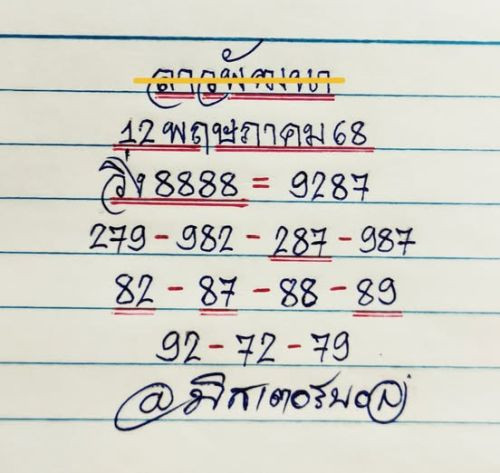 ลาวพัฒนา
12 พฤษภาคม 68
วิ่ง 8888 = 9287
279 - 982 - 287 - 987
82 - 87 - 88 - 89
92 - 72 - 79
@มิสเตอร์บอล